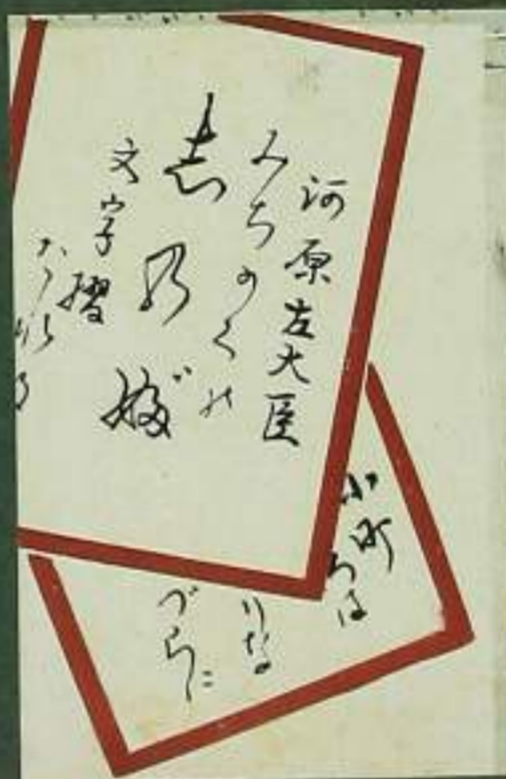 河原左大臣
みちのくの
志のぶ
文字摺
小町
ろは
りな
づらに